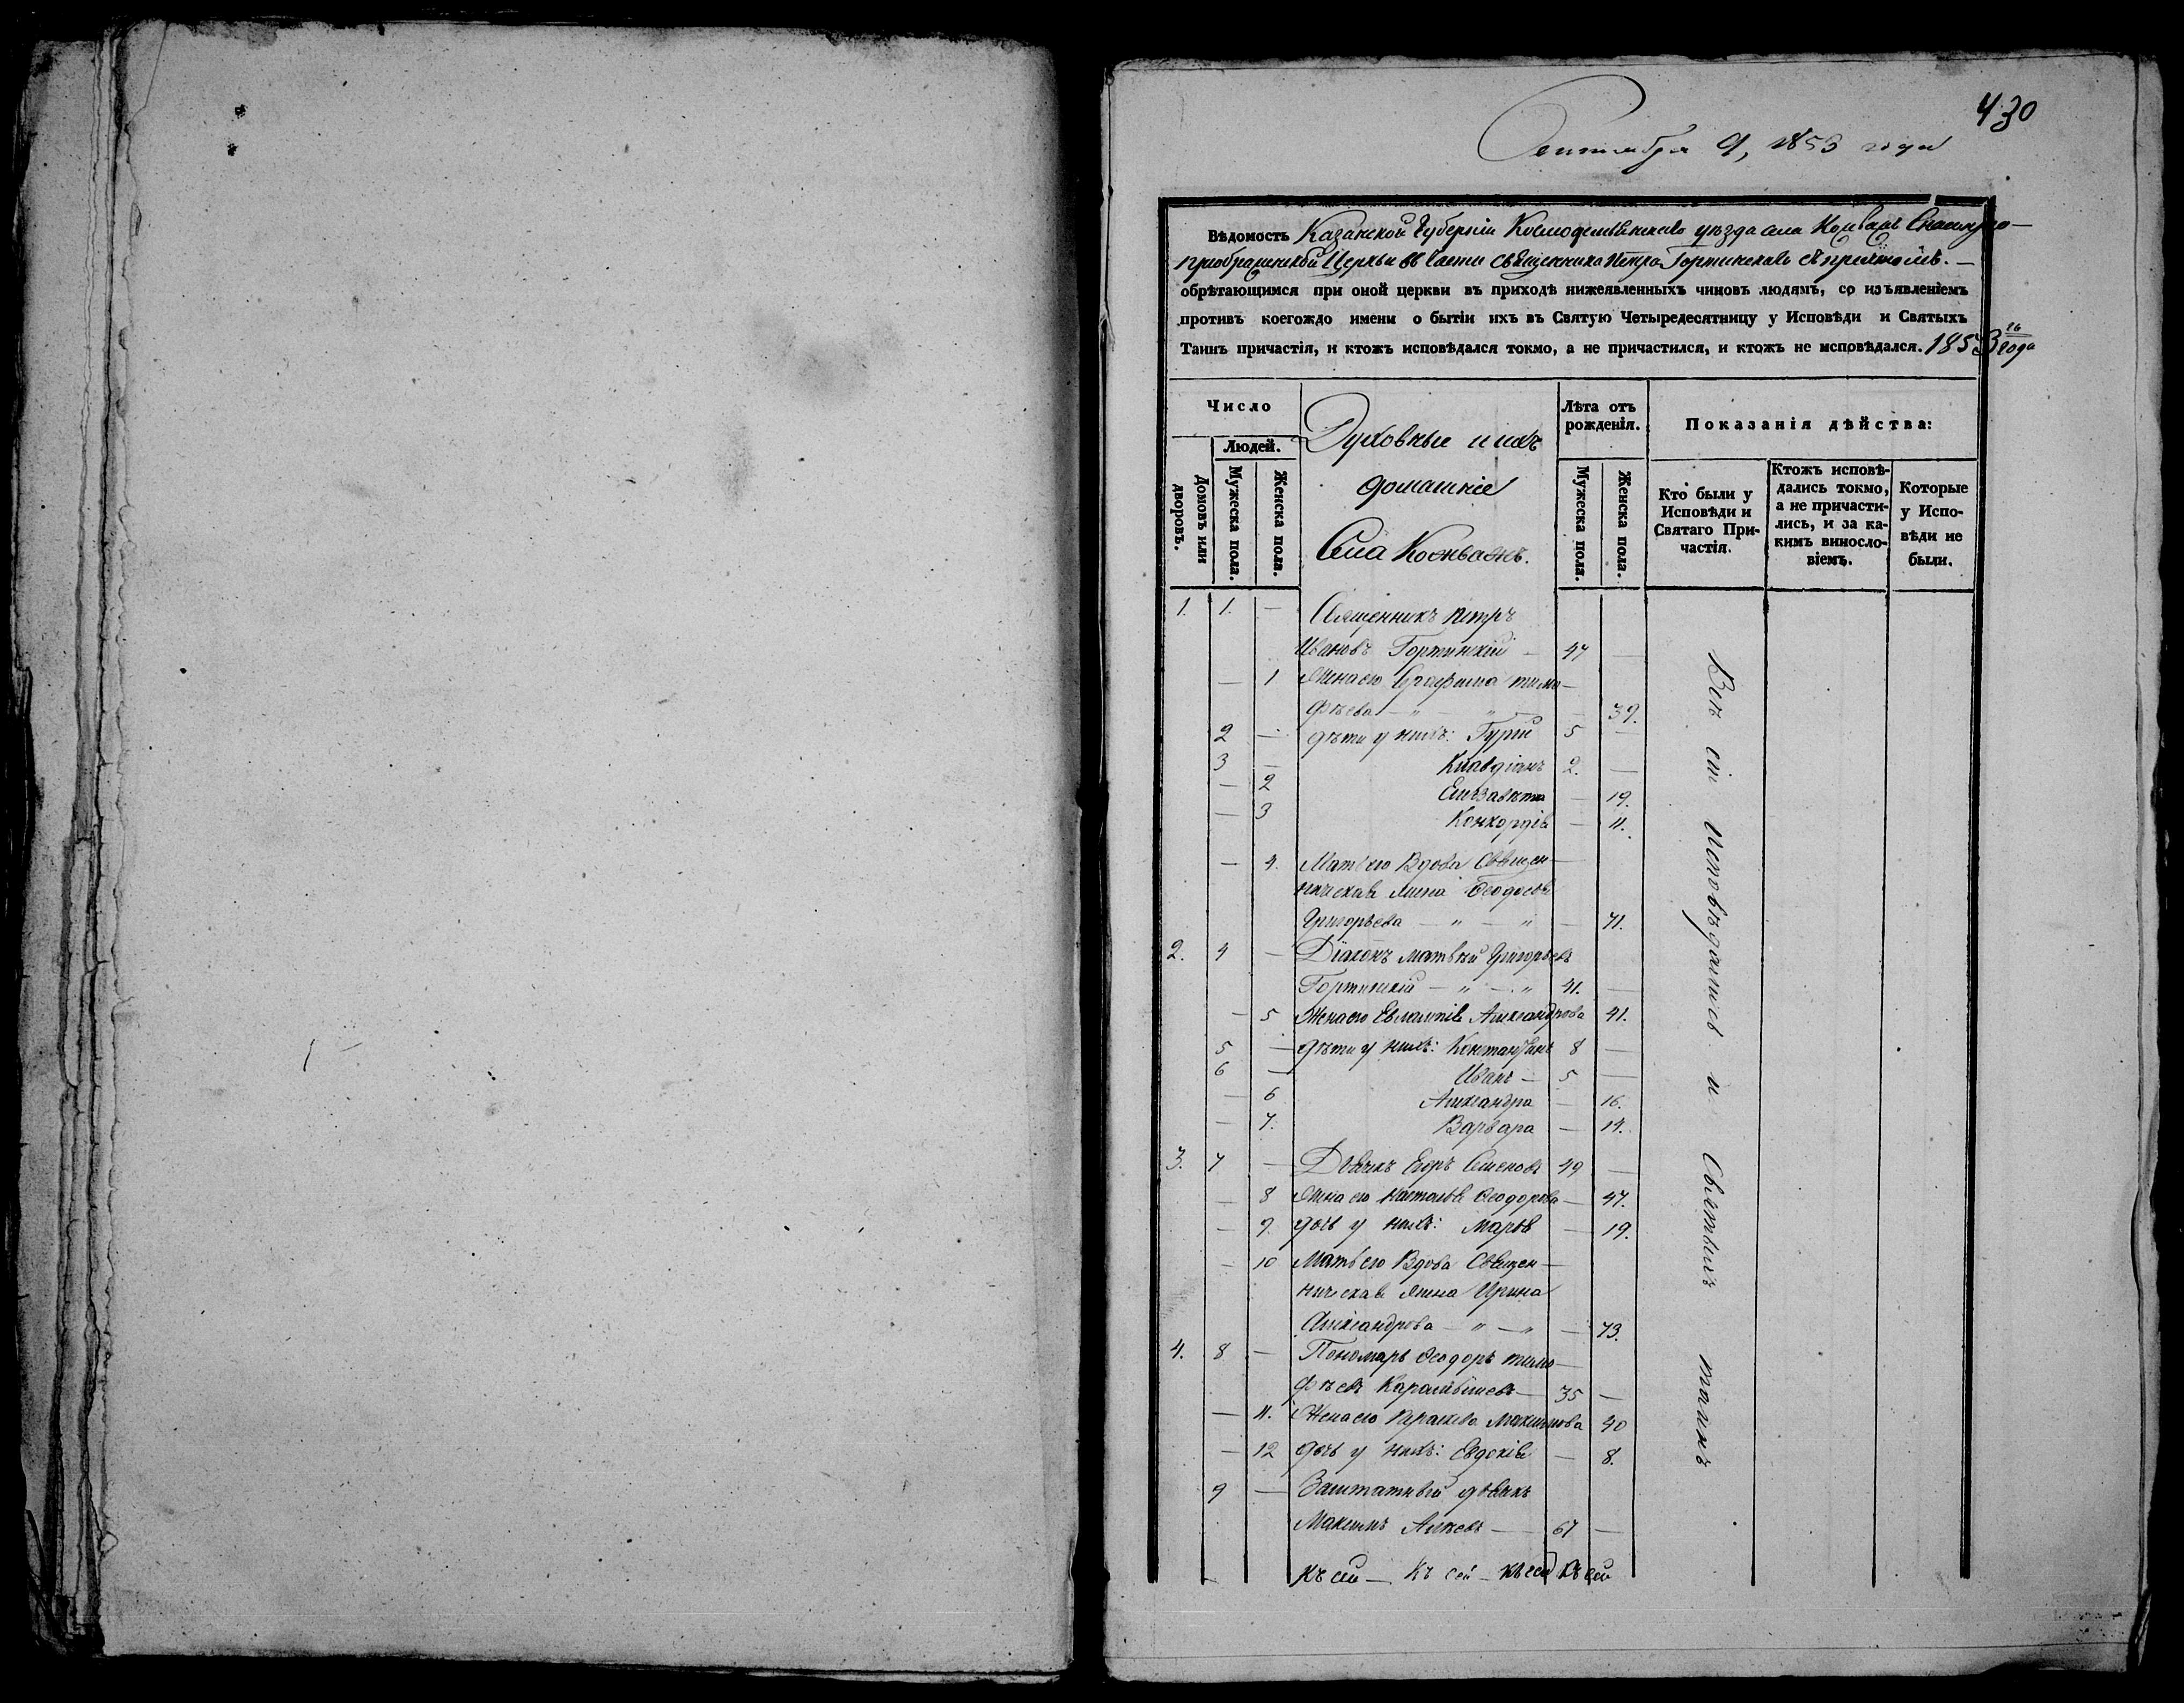 430
Сентября 9, 1853 года
Вѣдомость Казанской Губерніи Космодемьянскаго уѣзда села
Преображенской Церкви въ части священника Петра Гортинскаго съ причтомъ. —
обрѣтающимся при оной церкви въ приходѣ нижеявленныхъ чиновъ людямъ, со изъявленіемъ
противъ коегождо имени о бытіи ихъ въ Святую Четыредесятницу у Исповѣди и Святыхъ
Таинъ причастія, и ктожъ исповѣдался токмо, а не причастился, и ктожъ не исповѣдался. 1853 года
Число
Людей.
Домовъ или дворовъ.
Мужеска пола.
Женска пола.
Духовные и ихъ
домашніе
Села
Лѣта отъ рожденія.
Мужеска пола.
Женска пола.
Показанія дѣйства:
Кто были у Исповѣди и Святаго Причастія.
Ктожъ исповѣдались токмо, а не причастились, и за какимъ винословіемъ.
Которые у Исповѣди не были.
1. 1. — Священникъ Петръ
Ивановъ Гортинскій — 47 —
— 1 Жена его Серафима Тимо-
фѣева — „ — „ — 39.
2 — дѣти у нихъ: Гурій 5 —
3 — Клавдіанъ 2. —
— 2 Елизавета — 19.
— 3 Конкордія — 11.
— 4. Мать его Вдова Священ-
ническая жена Феодосья
Григорьева — „ — „ — 71.
2. 4 — Діаконъ Матвѣй Григорьевъ
Гортинскій — „ — „ 41. —
— 5 Жена его Евлампія Александрова 41.
5 — дѣти у нихъ: Константинъ 8 —
6 — Иванъ — 5 —
— 6 Александра — 16.
— 7. Варвара — 14.
3. 7 — Дьячкъ Егоръ Семеновъ 49 —
— 8 Жена его Наталья Феодорова — 47.
— 9. дочь у нихъ: Марья — 19.
— 10 Мать его Вдова Священ-
ническая жена Ирина
Александрова — „ — „ — 73.
4. 8 — Пономарь Феодоръ Тимо-
фѣевъ — 35 —
— 11. Жена его Параскева Максимова 40
— 12 дочь у нихъ: Евдокія — 8.
9 — Заштатный дьячкъ
Максимъ — 67 —
Къ сей — Къ сей — Къ сей Къ сей
Всѣ сіи исповѣдались и Святыхъ таинъ